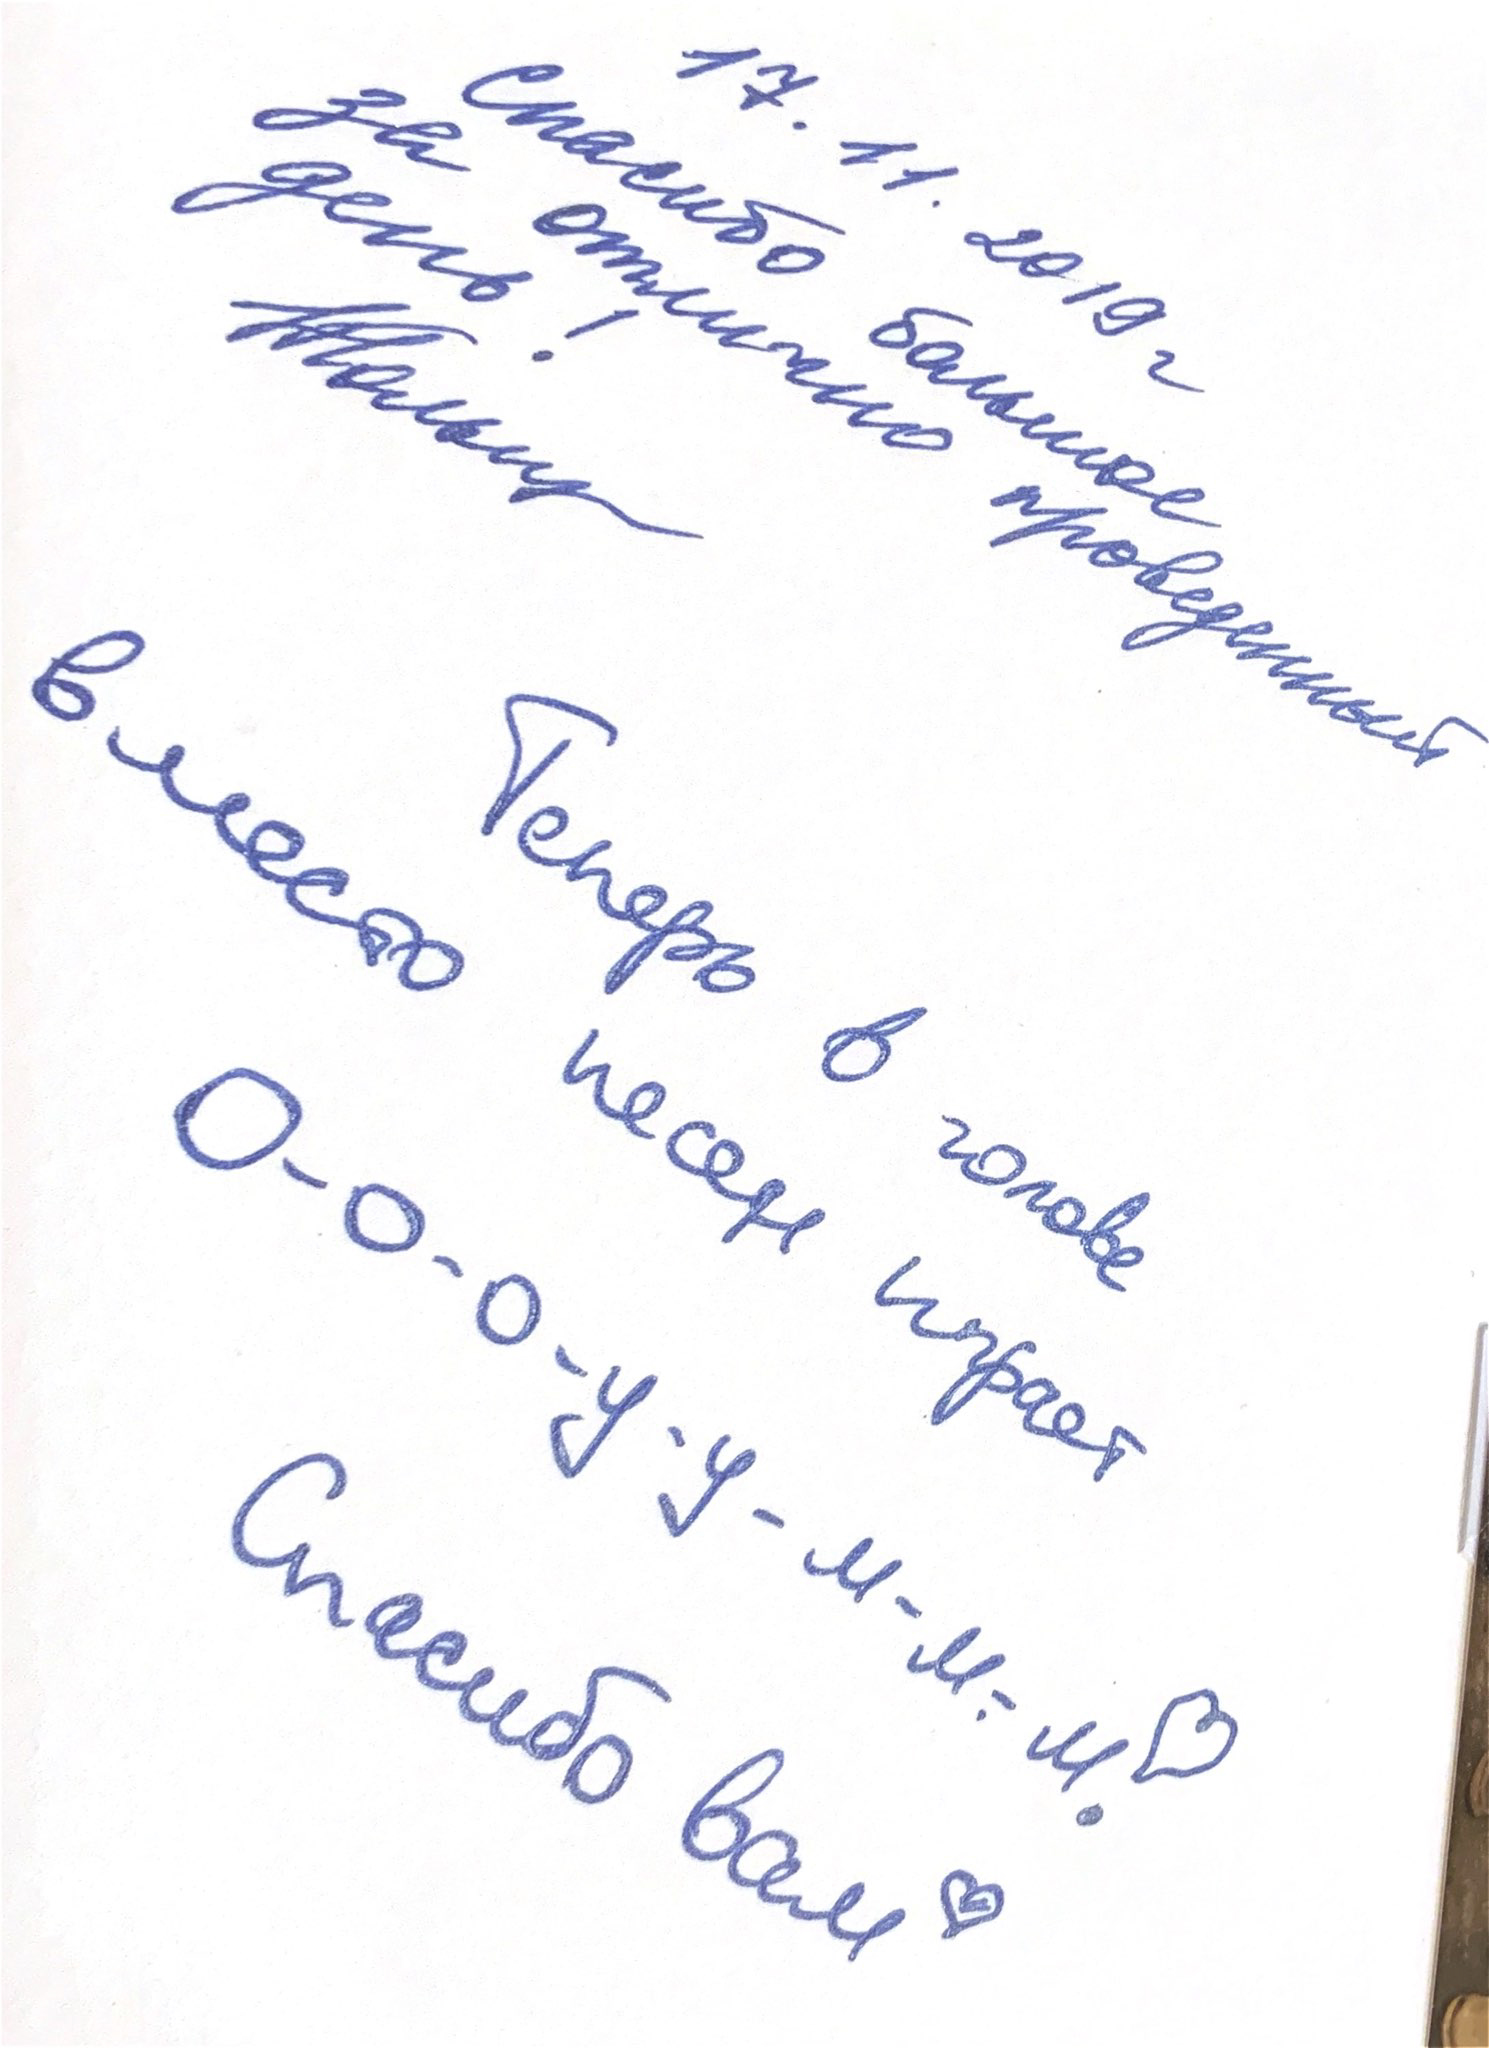 17.11.2019 г
Спасибо большое
за отлично проведенный
день!
Теперь в голове
вместо песен играет
О-о-о-у-у-м-м-м.♡
Спасибо вам ♡